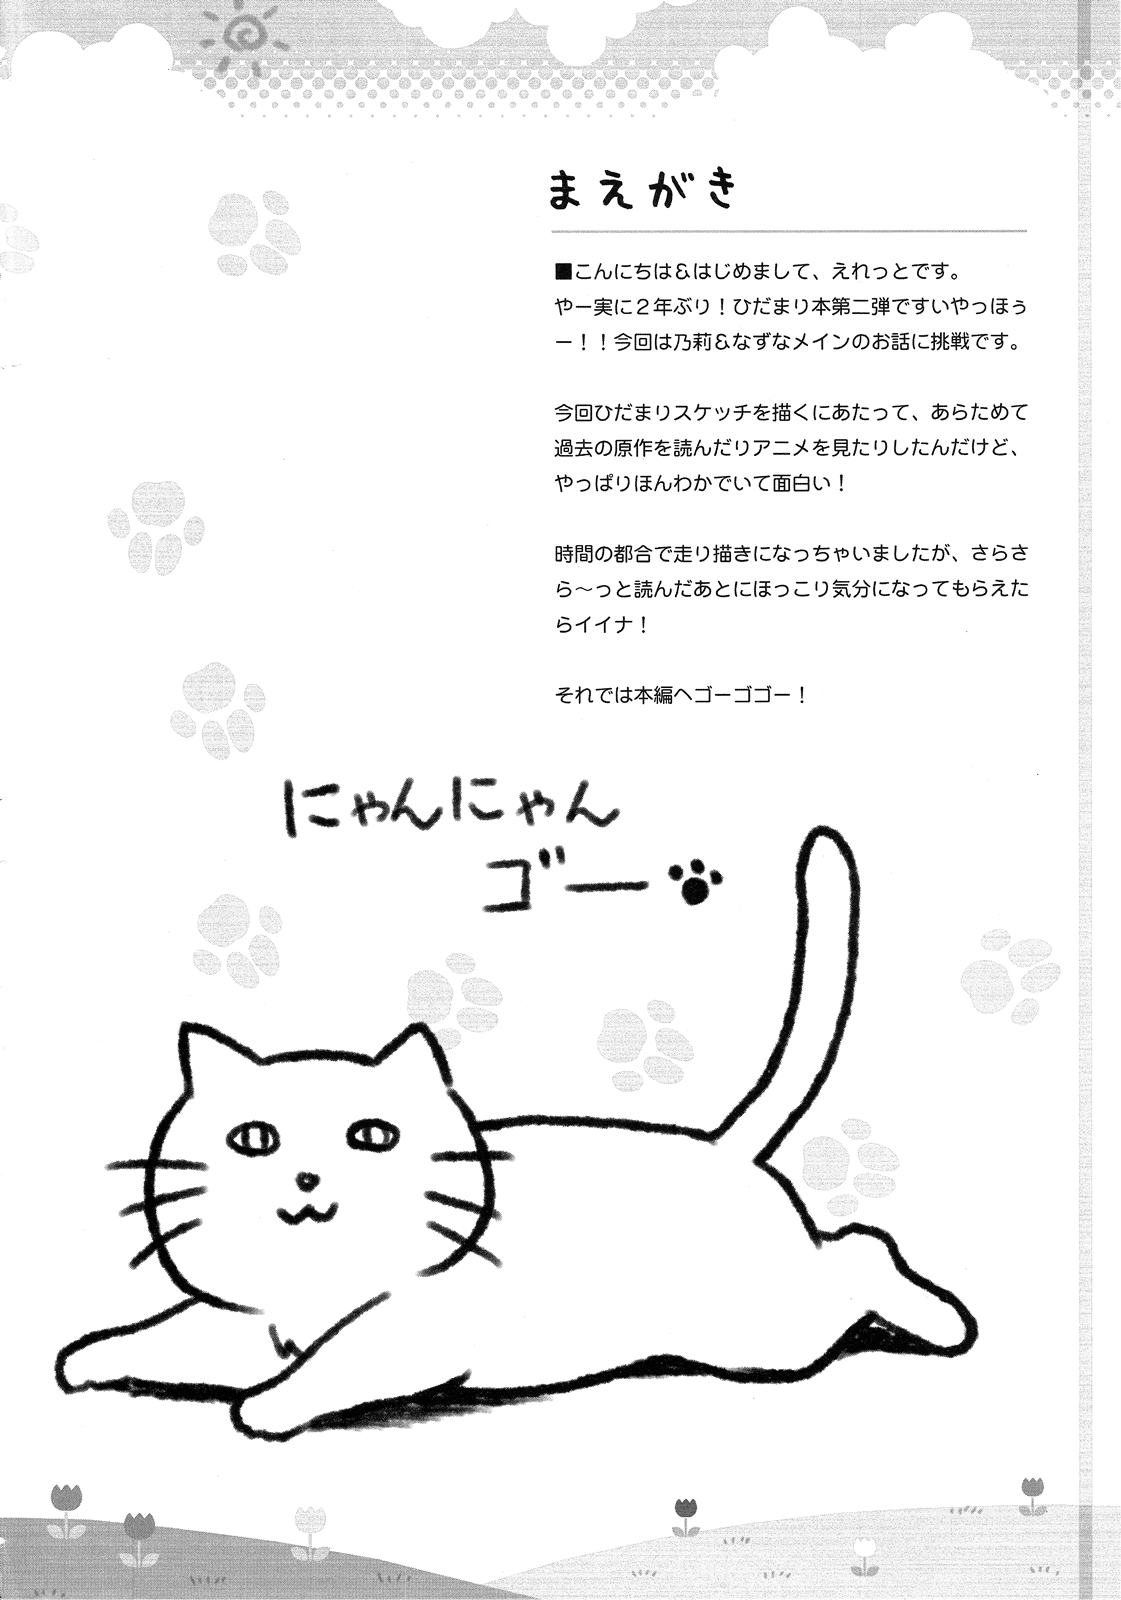 まえがき
■こんにちは＆はじめまして、えれっとです。
やー実に２年ぶり！ひだまり本第二弾ですいやっほぅ
ー！！今回は乃莉＆なずなメインのお話に挑戦です。
今回ひだまりスケッチを描くにあたって、あらためて
過去の原作を読んだりアニメを見たりしたんだけど、
やっぱりほんわかでいて面白い！
時間の都合で走り描きになっちゃいましたが、さらさ
ら～っと読んだあとにほっこり気分になってもらえた
らイイナ！
それでは本編へゴーゴゴー！
にゃんにゃん
ゴー